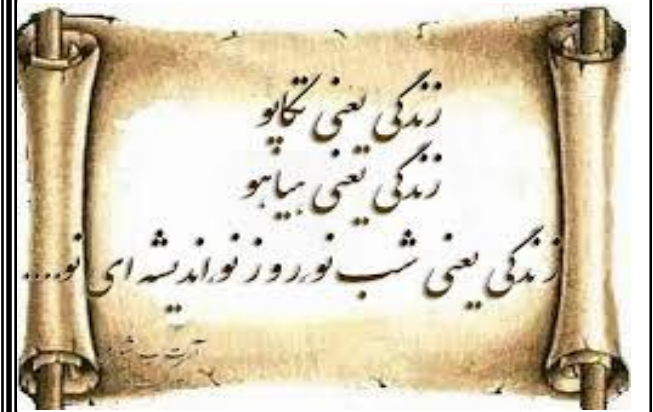 زندگی یعنی تکاپو
زندگی یعنی هیاهو
زندگی یعنی شب نو، روز نو، اندیشه ای نو....